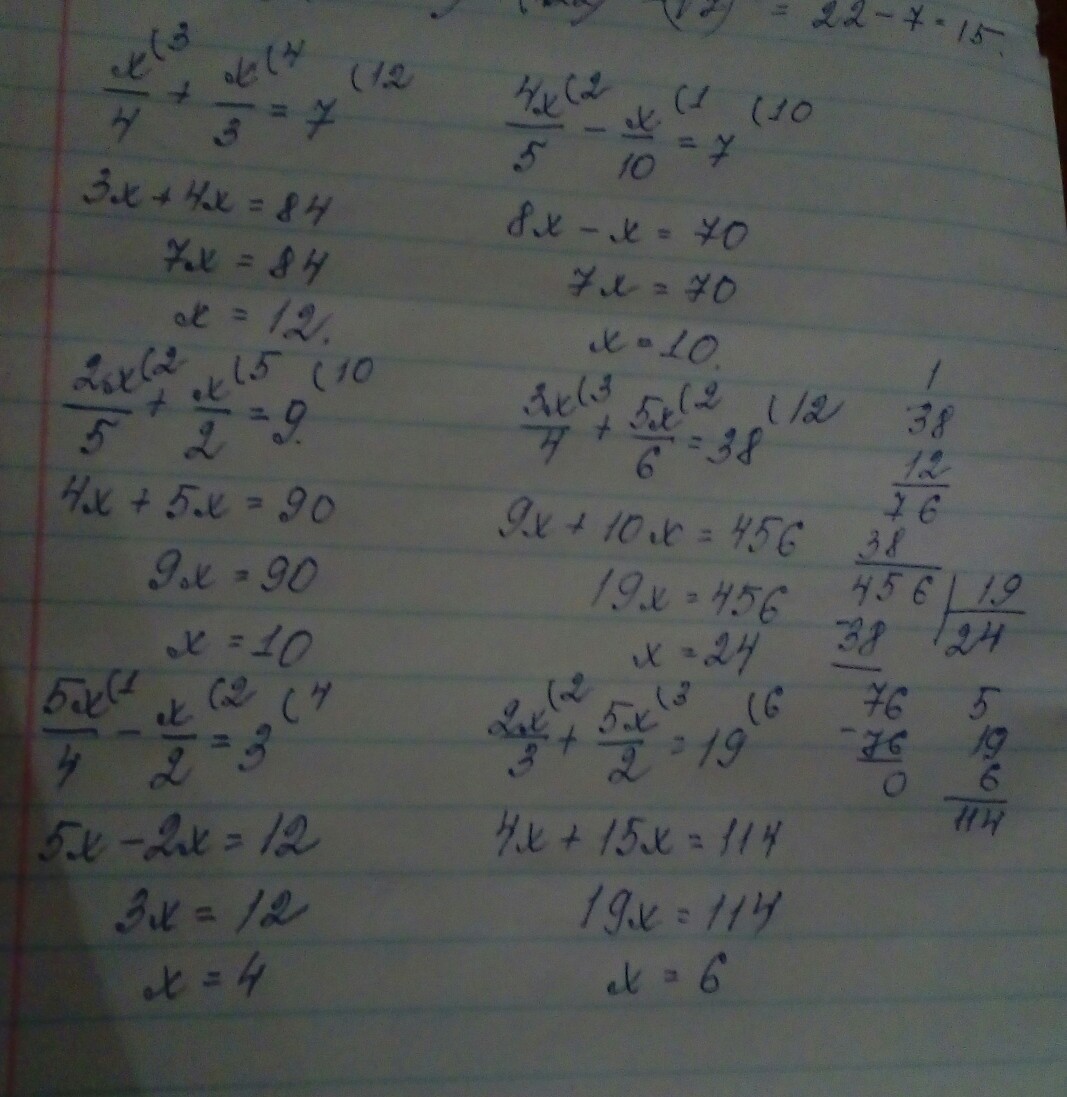 = 22 - 7 = 15.
x(3/4 + x(4/3 = 7 (12
3x + 4x = 84
7x = 84
x = 12.
4x(2/5 - x(1/10 = 7 (10
8x - x = 70
7x = 70
x = 10.
2x(2/5 + x(5/2 = 9 (10
4x + 5x = 90
9x = 90
x = 10
3x(3/4 + 5x(2/6 = 38 (12
9x + 10x = 456
19x = 456
x = 24
1
38
12
76
38
456 | 19
-38 24
76
-76
0
5x(1/4 - x(2/2 = 3 (4
5x - 2x = 12
3x = 12
x = 4
2x(2/3 + 5x(3/2 = 19 (6
4x + 15x = 114
19x = 114
x = 6
5
19
6
114